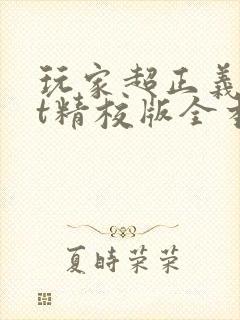 玩家超正義
t精校版全
夏時荣荣